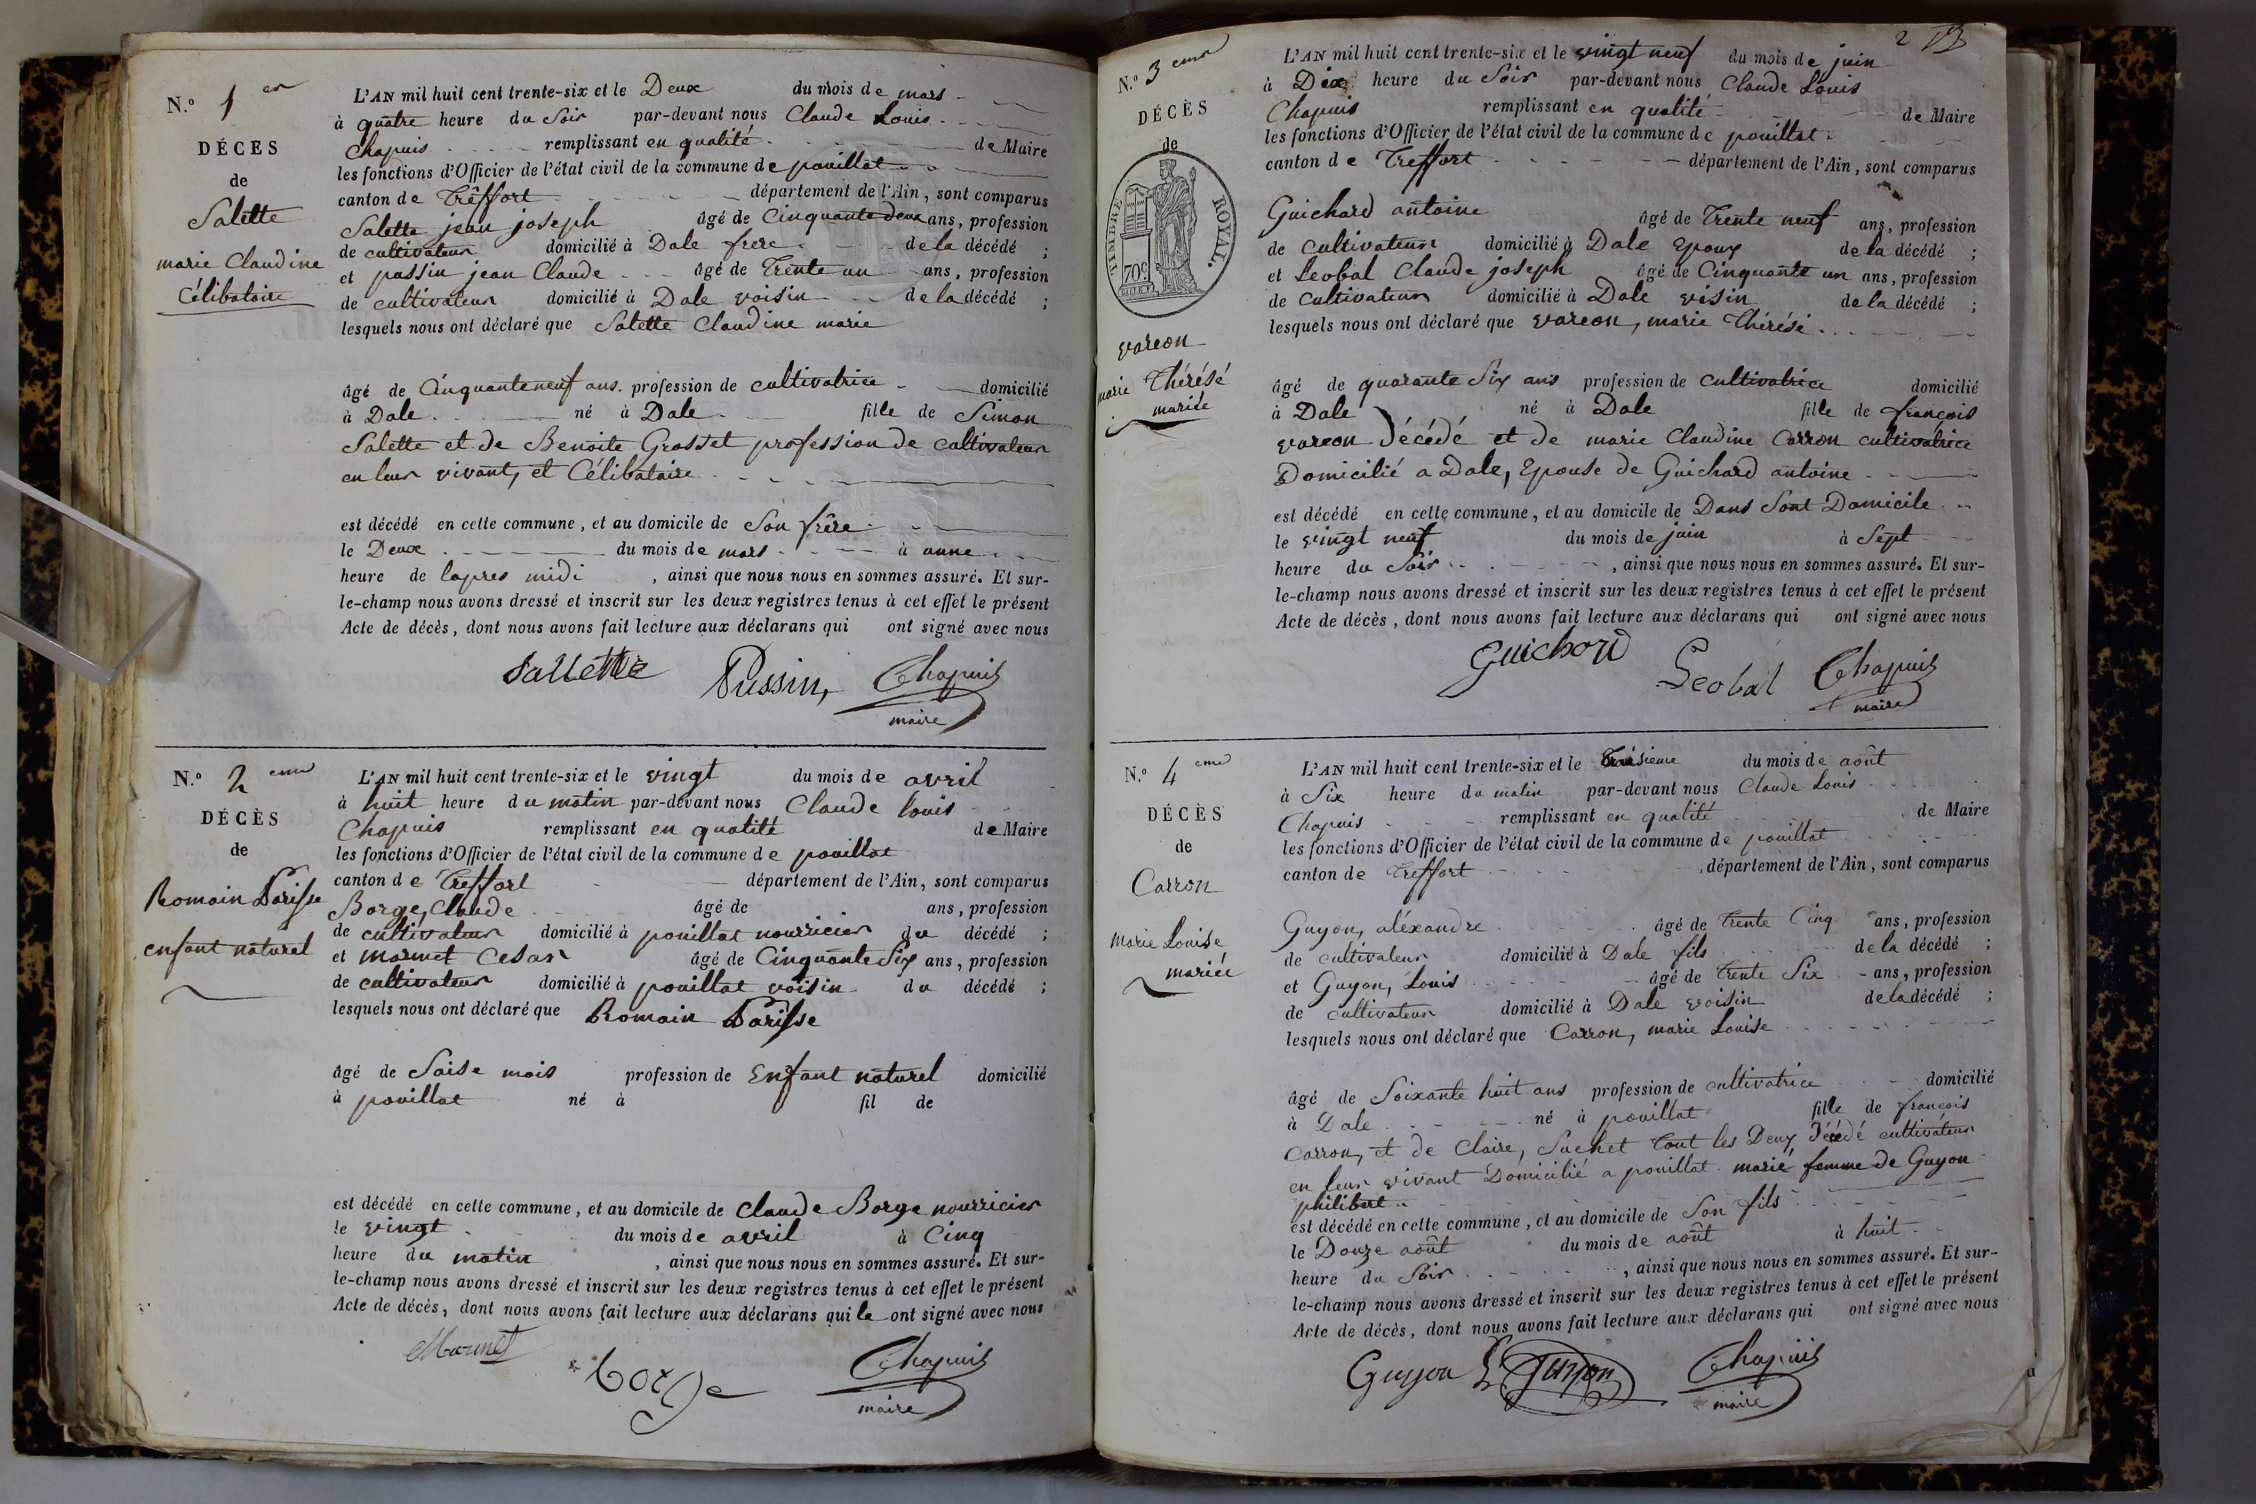 N.º 1er
DÉCES
de
Salette
marie Claudine
Célibataire
L'AN mil huit cent trente-six et le Deux du mois de mars
à quatre heure du Soir par-devant nous Claude Louis
Chapuis remplissant en qualité de Maire
les fonctions d'Officier de l'état civil de la commune de pouillat
canton de Trêffort département de l'Ain, sont comparus
Salette jean joseph âgé de Cinquante deux ans, profession
de cultivateur domicilié à Dale frere de la décédé ;
et passin jean Claude âgé de Trente un ans, profession
de cultivateur domicilié à Dale voisin de la décédé ;
lesquels nous ont déclaré que Salette Claudine marie
âgé de Cinquante neuf ans. profession de cultivatrice domicilié
à Dale né à Dale fille de Simon
Salette et de Benoite Grosset profession de cultivateur
en leur vivant, et Célibataire
est décédé en cette commune, et au domicile de Son frêre
le Deux du mois de mars à unne
heure de lapres midi , ainsi que nous nous en sommes assuré. Et sur-
le-champ nous avons dressé et inscrit sur les deux registres tenus à cet effet le présent
Acte de décès, dont nous avons fait lecture aux déclarans qui ont signé avec nous
Sallette Pussin, Chapuis
maire
N.º 2eme
DÉCÈS
de
Romain Parisse
enfant naturel
L'AN mil huit cent trente-six et le vingt du mois de avril
à huit heure du matin par-devant nous Claude louis
Chapuis remplissant en qualité de Maire
les fonctions d'Officier de l'état civil de la commune de pouillat
canton de Treffort département de l'Ain, sont comparus
Borge, Claude âgé de ans, profession
de cultivateur domicilié à pouillat nourricier du décédé ;
et marmet Cesar âgé de Cinquante Six ans, profession
de cultivateur domicilié à pouillat voisin du décédé ;
lesquels nous ont déclaré que Romain Parisse
âgé de Saise mois profession de Enfant naturel domicilié
à pouillat né à fil de
est décédé en cette commune, et au domicile de Claude Borge nourricier
le vingt du mois de avril à Cinq
heure du matin , ainsi que nous nous en sommes assuré. Et sur-
le-champ nous avons dressé et inscrit sur les deux registres tenus à cet effet le présent
Acte de décès, dont nous avons fait lecture aux déclarans qui le ont signé avec nous
Marmet borge Chapuis
maire
2
N.º 3eme
DÉCÈS
de
TIMBRE ROYAL.
70c
varcon
marie Thérésé
mariée
L'AN mil huit cent trente-six et le vingt neuf du mois de juin
à Dix heure du Soir par-devant nous Claude Louis
Chapuis remplissant en qualité de Maire
les fonctions d'Officier de l'état civil de la commune de pouillat
canton de Treffort département de l'Ain, sont comparus
Guichard antoine âgé de Trente neuf ans, profession
de Cultivateur domicilié à Dale Epoux de la décédé ;
et Leobal Claude joseph âgé de Cinquante un ans, profession
de Cultivateur domicilié à Dale visin de la décédé ;
lesquels nous ont déclaré que varcon, marie Thérésé
âgé de quarante Six ans profession de Cultivatrice domicilié
à Dale né à Dale fille de françois
varcon Décédé et de marie Claudine Carron cultivatrice
Domicilié a Dale, Epouse de Guichard antoine
est décédé en cette commune, et au domicile de Dans Sont Domicile
le vingt neuf du mois de juin à Sept
heure du Soir , ainsi que nous nous en sommes assuré. Et sur-
le-champ nous avons dressé et inscrit sur les deux registres tenus à cet effet le présent
Acte de décès, dont nous avons fait lecture aux déclarans qui ont signé avec nous
Guichard Leobal Chapuis
maire
N.º 4eme
DÉCÈS
de
Carron
marie Louise
mariée
L'AN mil huit cent trente-six et le Troisieme du mois de août
à Six heure du matin par-devant nous Claude Louis
Chapuis remplissant en qualité de Maire
les fonctions d'Officier de l'état civil de la commune de pouillat
canton de Treffort département de l'Ain, sont comparus
Guyon, aléxandre âgé de Trente Cinq ans, profession
de cultivateur domicilié à Dale fils de la décédé ;
et Guyon, Louis âgé de Trente Six ans, profession
de cultivateur domicilié à Dale voisin de la décédé ;
lesquels nous ont déclaré que Carron, marie Louise
âgé de Soixante huit ans profession de cultivatrice domicilié
à Dale né à pouillat fille de françois
Carron, et de Claire, Suchet Tout les Deux Décédé cultivateur
en leur vivant Domicilié a pouillat marié femme de Guyon
philibert
est décédé en cette commune, et au domicile de Son fils
le Douze août du mois de août à huit
heure du Soir , ainsi que nous nous en sommes assuré. Et sur-
le-champ nous avons dressé et inscrit sur les deux registres tenus à cet effet le présent
Acte de décès, dont nous avons fait lecture aux déclarans qui ont signé avec nous
Guyon L Guyon Chapuis
maire